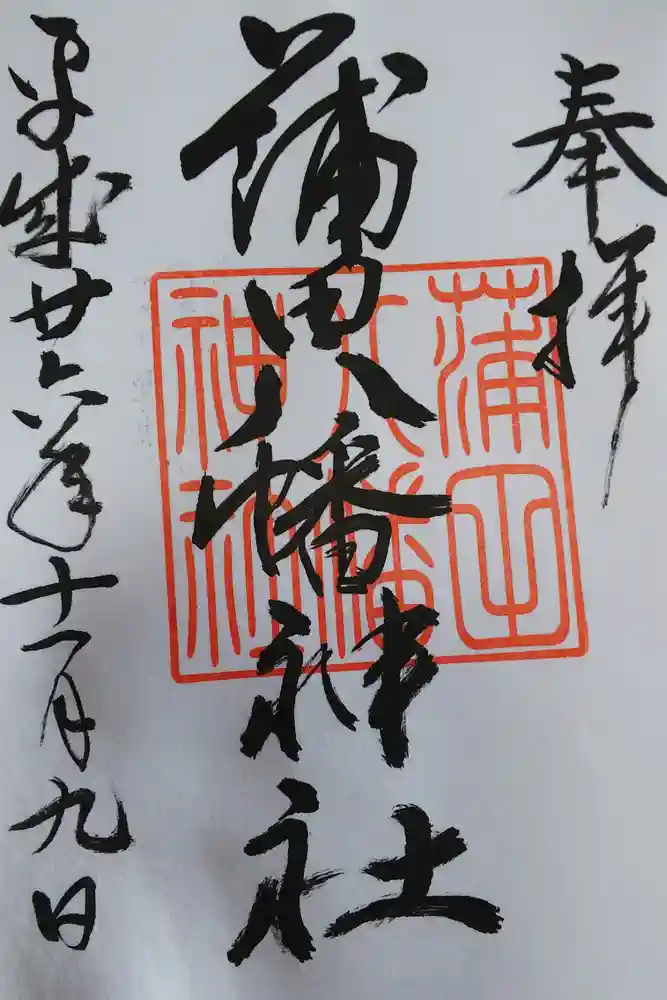 奉拝
蒲田八幡神社
平成廿六年十一月九日
蒲田
八幡
神社